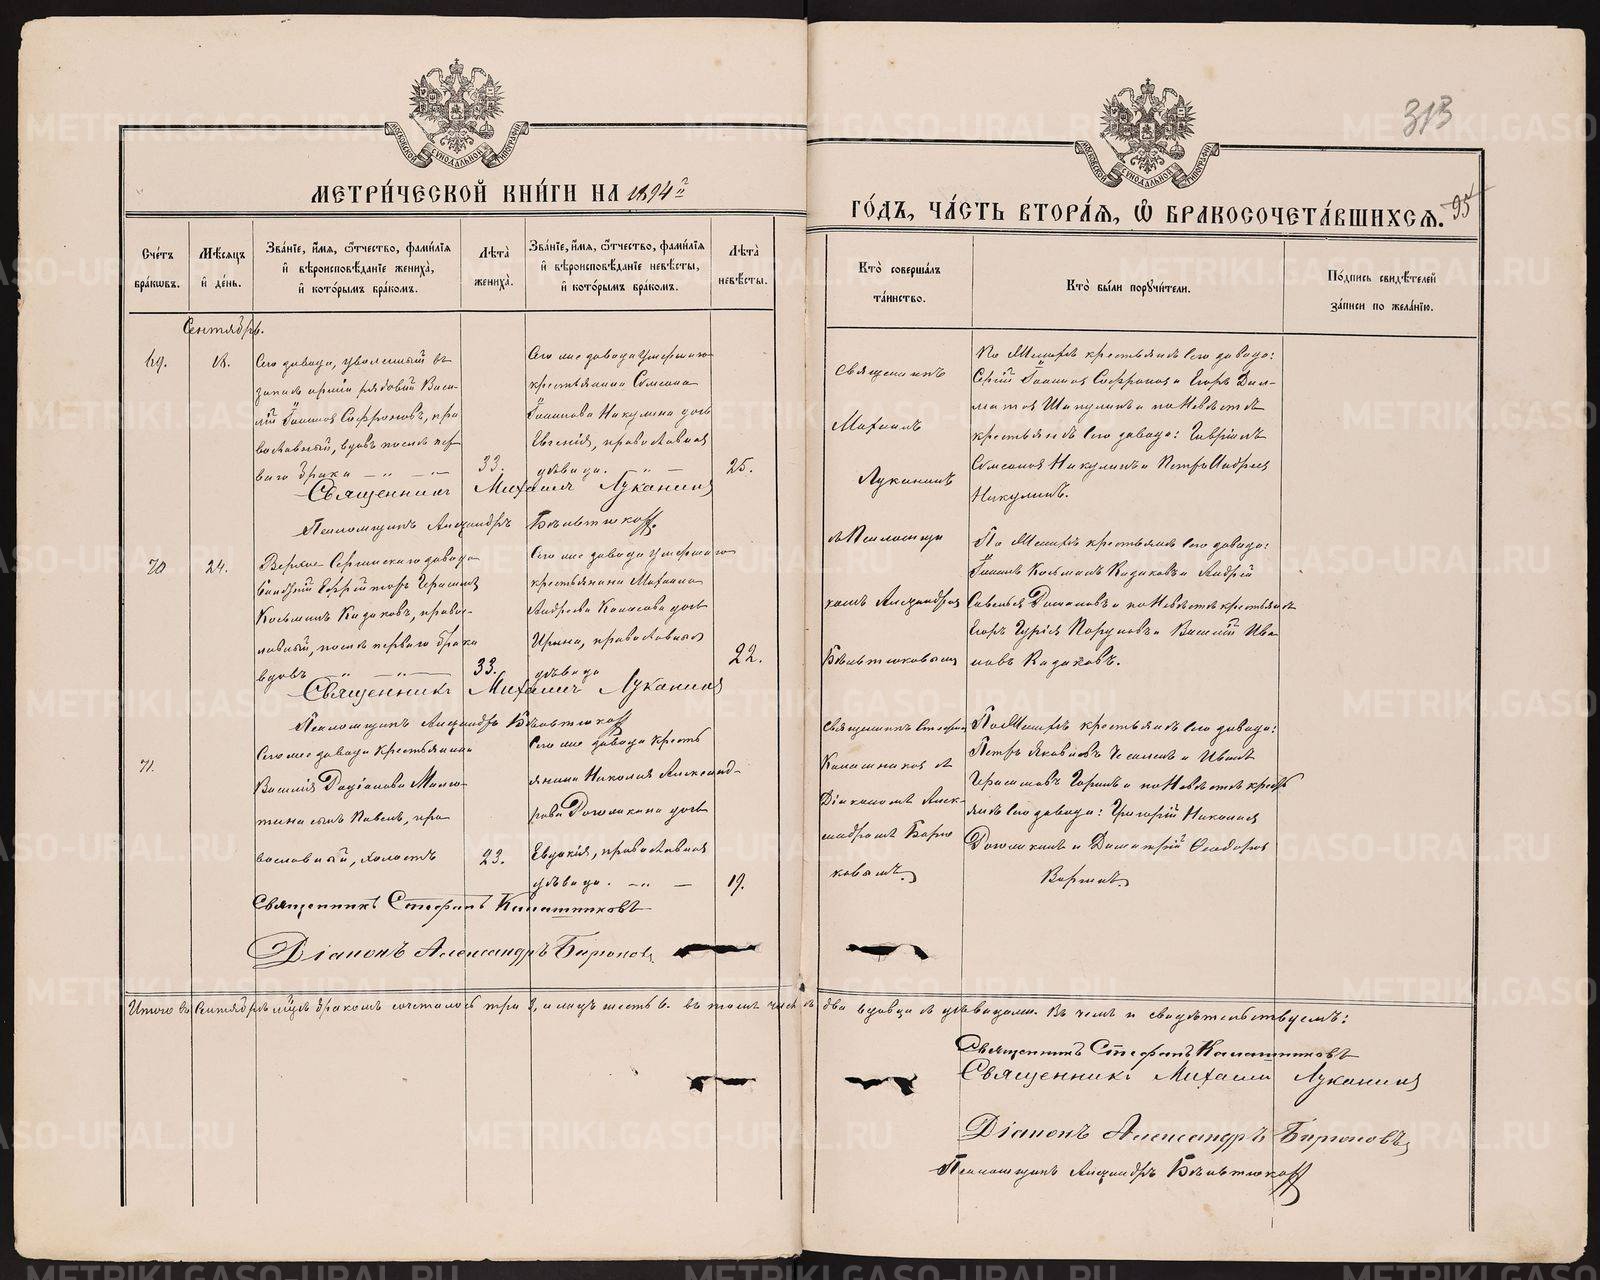 313
МОСКОВСКОЙ СѴНОДАЛЬНОЙ ТИПОГРАФІИ
МОСКОВСКОЙ СѴНОДАЛЬНОЙ ТИПОГРАФІИ
МЕТРИ́ЧЕСКОЙ КНИ́ГИ НА 1894й
ГО́ДЪ, ЧА́СТЬ ВТОРА́Я, Ѡ БРАКОСОЧЕТА́ВШИХСЯ. 95
Сче́тъ бра́кѡвъ.
Мѣ́сяцъ и́ де́нь.
Зва́нїе, и́мя, ѻ́тчество, фами́лїя и́ вѣроисповѣ́данїе жениха̀, и́ кото́рымъ бра́комъ.
Лѣ́та жениха̀.
Зва́нїе, и́мя, ѻ́тчество, фами́лїя и́ вѣроисповѣ́данїе невѣ́сты, и́ кото́рымъ бра́комъ.
Лѣ́та невѣ́сты.
Кто̀ соверша́лъ та́инство.
Кто̀ бы́ли порꙋчи́тели.
По́дпись свидѣ́телей за́писи по жела́нїю.
Сентябрь.
69.
18.
Сего завода, уволенный въ
запасъ арміи рядовый Васи-
лій Іоанновъ Софроновъ, пра
вославный, вдовъ послѣ пер
ваго брака
33.
Сего же завода умершаго
крестьянина Симеона
Іоаннова Никулина дочь
Евгенія, православная
дѣвица.
25.
Священникъ
Михаилъ
Луканинъ
По женихѣ крестьяне сего завода:
Сергій Іоанновъ Софроновъ и Егоръ Дал-
матовъ Шипулинъ и по невѣстѣ
крестьяне сего завода: Гавріилъ
Симеоновъ Никулинъ и Петръ Андреевъ
Никулинъ.
Священникъ Михаилъ Луканинъ
Псаломщикъ Александръ
70
24.
Верхне-Сергинскаго завода
Косьминъ Кадаковъ, правос-
лавный, послѣ перваго брака
вдовъ
33.
Сего же завода умершаго
крестьянина Михаила
Андреева Катаева дочь
Ирина, православная
дѣвица
22.
съ Псаломщи
комъ Александромъ
По женихѣ крестьяне сего завода:
Іоаннъ Косьминъ Кадаковъ и Андрей
Савельевъ и по невѣстѣ крестьяне
Егоръ и Василій Ива
новъ Кадаковъ.
Священникъ Михаилъ Луканинъ
Псаломщикъ Александръ
71.
Сего же завода крестьянина
Василія
сынъ Павелъ, пра
вославный, холостъ
23.
Сего же завода кресть
янина Николая Александ-
рова дочь
Евдокія, православная
дѣвица.
19.
Священникъ Стефанъ
Калашниковъ съ
Діакономъ Алек-
сандромъ Бирю
ковымъ.
По женихѣ крестьяне сего завода:
Петръ Яковлевъ и Иванъ
Герасимовъ и по невѣстѣ кресть
яне сего завода: Григорій Николаевъ
и Димитрій Ѳеодоровъ
Священникъ Стефанъ Калашниковъ
Діаконъ Александръ Бирюковъ
Итого въ Сентябрѣ мцѣ бракомъ сочеталось три 3, а лицъ шесть 6. въ томъ числѣ два вдовца съ дѣвицами. Въ чемъ и свидѣтельствуемъ:
Священникъ Стефанъ Калашниковъ
Священникъ Михаилъ Луканинъ
Діаконъ Александръ Бирюковъ
Псаломщикъ Александръ
METRIKI.GASO-URAL.RU